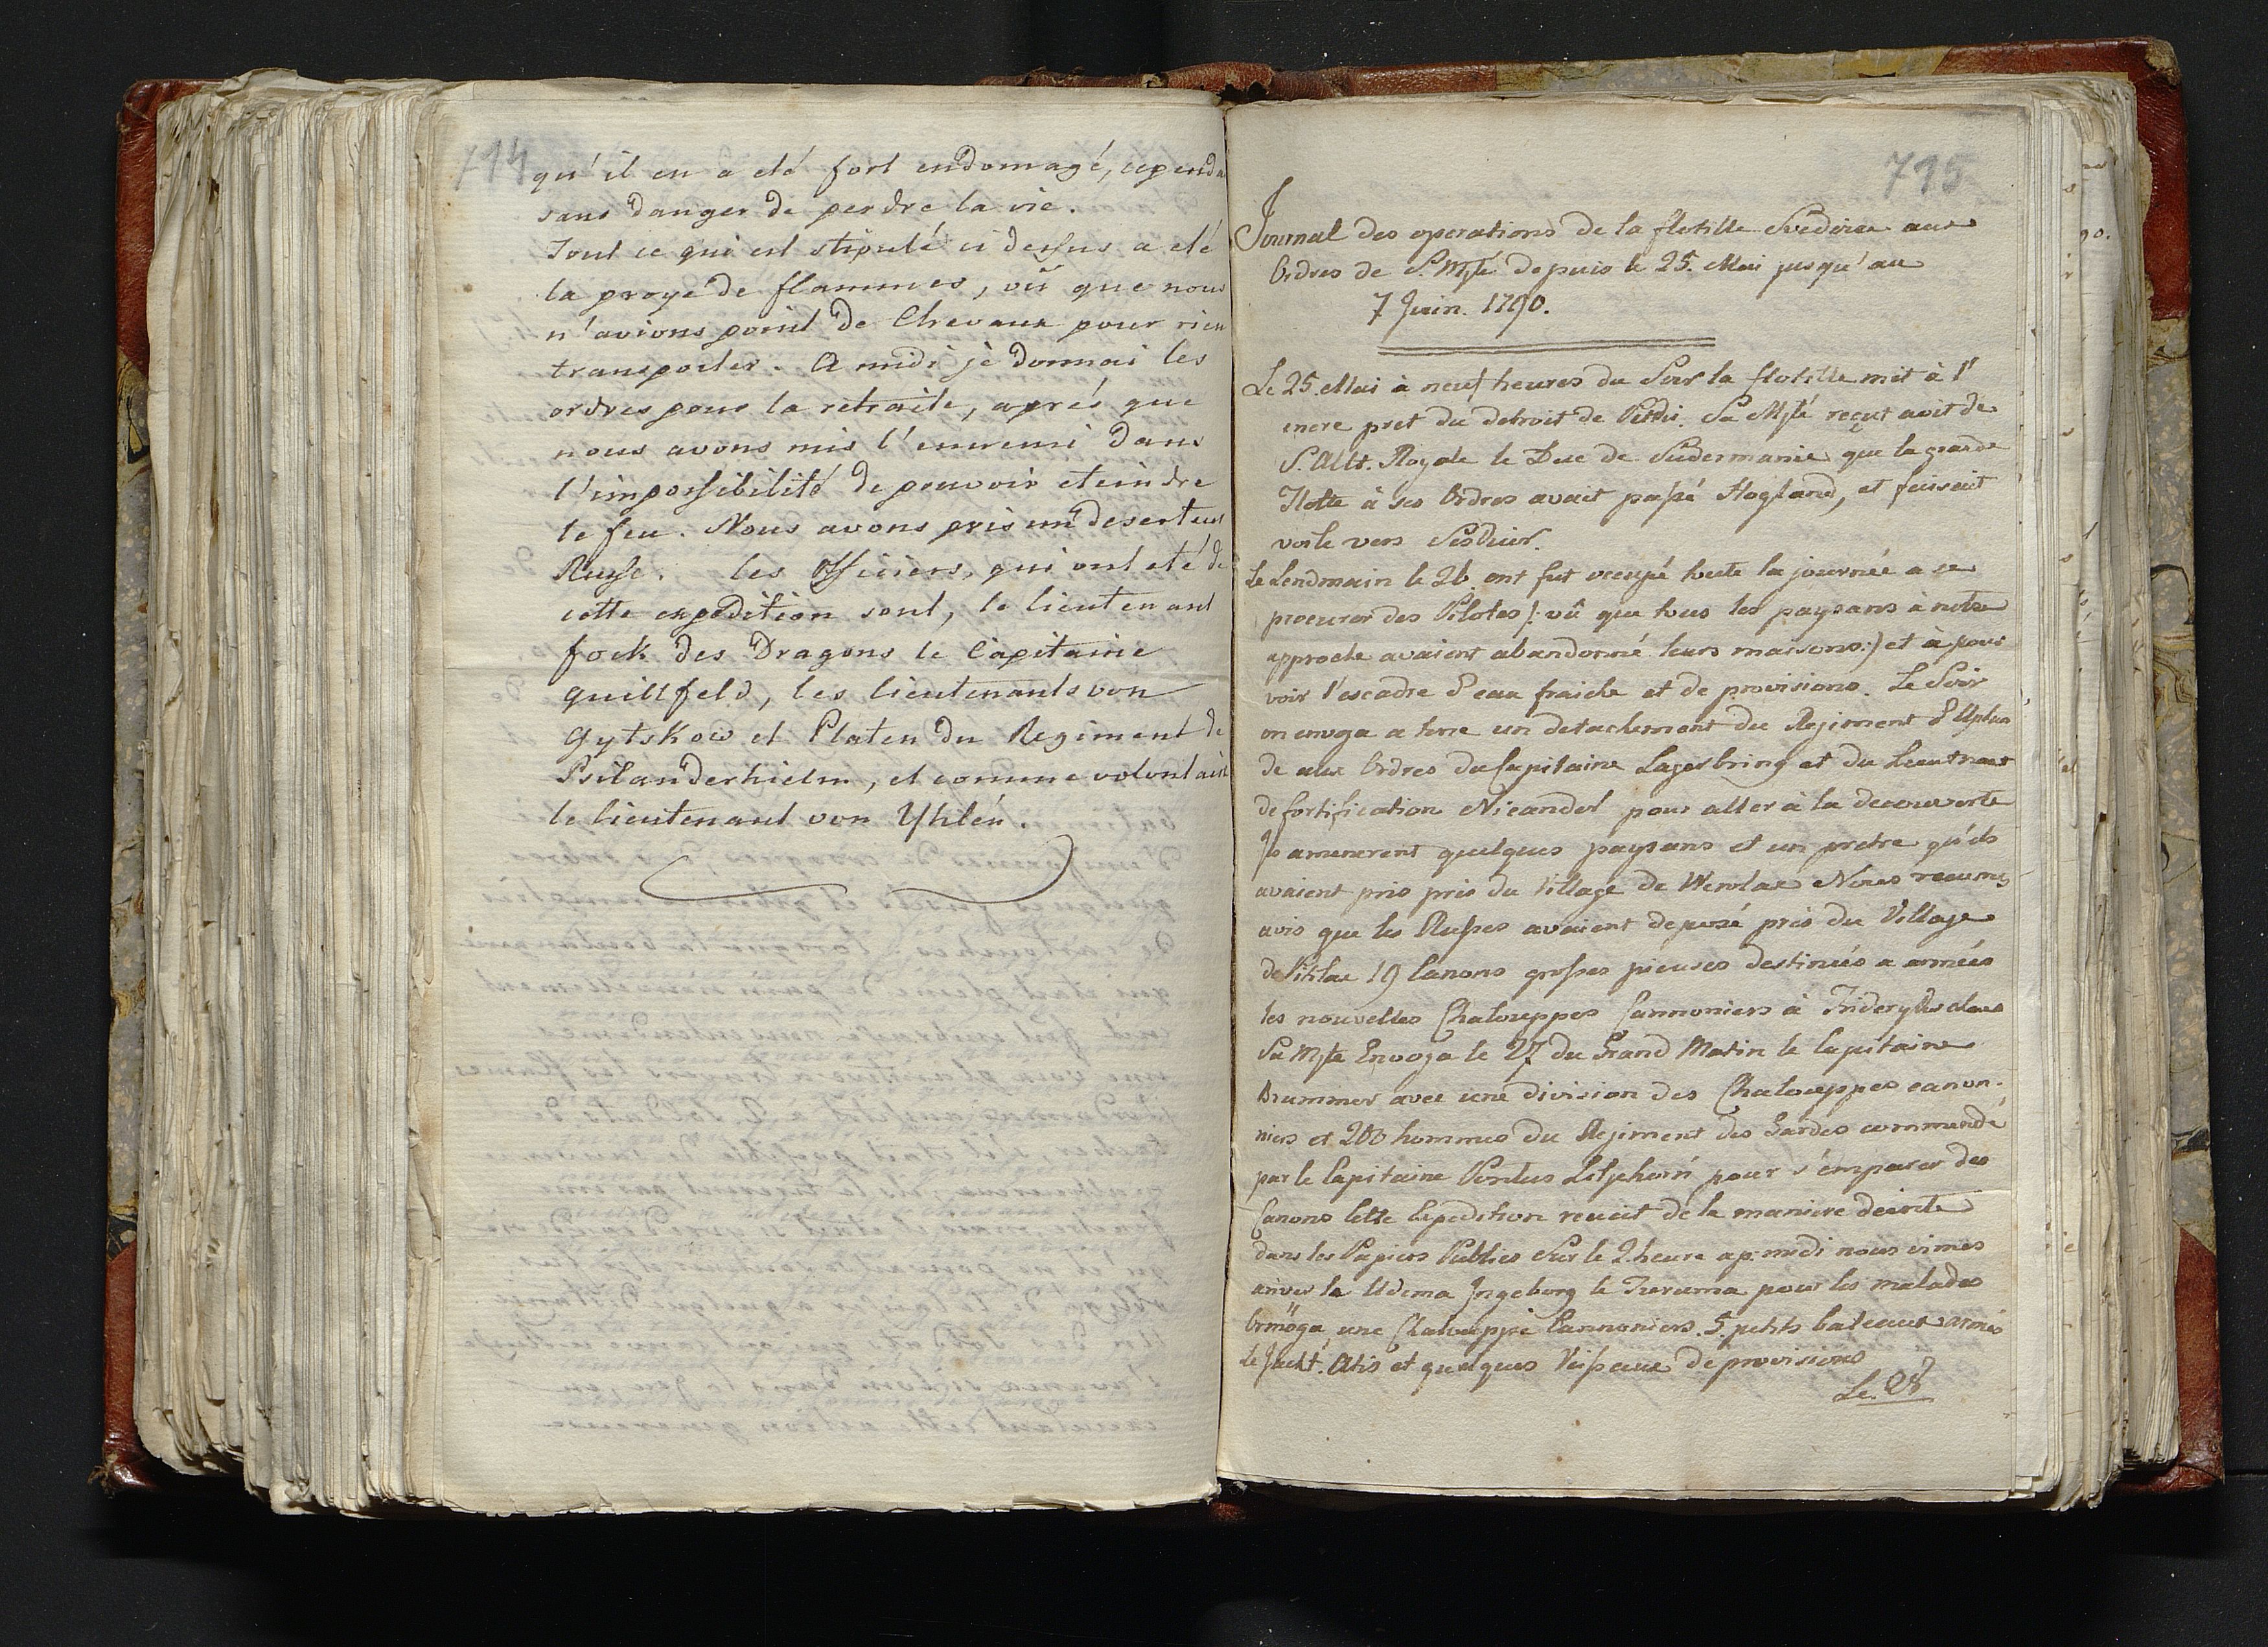 714
qu'il en a eté fort endomagé, cependa
sans danger de perdre la vie.
Tout ce qui est stipulé ci dessus a eté
la proye de flammes, vû que nous
n'avions point de Chevaux pour rien
transporter. A midi je donnai les
ordres pour la retraite, aprés que
nous avons mis l'ennemi dans
l'impossibilité de pouvoir eteindre
le feu. Nous avons pris un deserteur
Russe. les Officiers, qui ont eté de
cette expedition sont, le lieutenant
fock des Dragons le Capitaine
quillfeld, les lieutenants von
Gytskow et Platen du Regiment de
Psilanderhielm, et comme volontair
le lieutenant von Yhlén.
715
Journal des operations de la flotille Svedoise aux
Ordres de S. Mjté depuis le 25. Mai jusqu'au
7 Juin. 1790.
Le 25 Mai à neuf heures du Soir la flotille mit à l'
encre pret du detroit de Pitkis. Sa Mjté reçut avit de
S. Alt. Royale le Duc de Sudermanie que la grande
Flotte à ses Ordres avait passé Hogland, et faisait
voile vers Seskier.
Le Lendmain le 26 ont fut occupé toute la journée a se
procurer des Pilotes /: vû que tous les paysans à notre
approche avaient abandonné leurs maisons:/ et à pour
voir l'escadre d'eau fraiche et de provisions. Le Soir
on envoya a terre un detachement du Rejiment d'Uplan
de aux Ordres du Capitaine Lagerbring et du Lieutnant
de fortification Nicander pour aller à la decouverte
Js amenerent quelques paysans et un pretre qu'ils
avaient pris prés du Village de Wenlax Nous recumes
avis que les Russes avaient deposé prés du Village
de Pitlax 19 Canons grosses pieuses destinés a armées
les nouvelles Chalouppes Cannoniers à
Sa Mjté Envoya le 27 du Grand Matin le Capitaine
Brummer avec une division des Chalouppes canon-
niers et 200 hommes du Rejiment des Gardes commandé
par le Capitaine Pontus Liljehorn pour s'emparer des
Canons Cette Expedition reusit de la maniere decrite
dans les Papiers Publics Sur le 2 heure ap: midi nous vimes
arriver la Udema Ingeborg le Turuma pour les malades
Ormöga, une Chalouppe Cannoniers. 5. petits bateaux armés
le Jackt. Atis et quelques Veisseaux de provisions
Le. 28